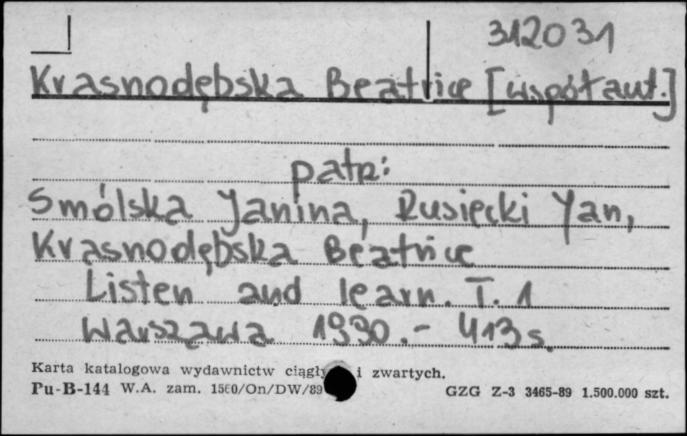 312031
Krasnodębska Beatrice [współaut.]
patrz:
Smólska Janina, Rusiecki Jan,
Krasnodębska Beatrice
Listen and learn. T. 1
Warszawa 1990.- 413 s.
Karta katalogowa wydawnictw ciągły i zwartych.
Pu-B-144 W.A. zam. 1560/On/DW/89 GZG Z-3 3465-89 1.500.000 szt.